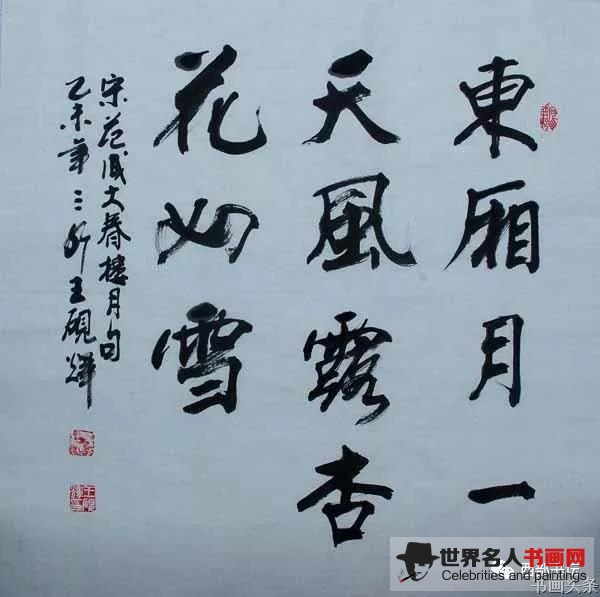 東厢月一
天風露杏
花如雪
宋范成大秦樓月句
乙未年三 王硯輝
世界名人书画网
Celebrities and paintings
书画头条